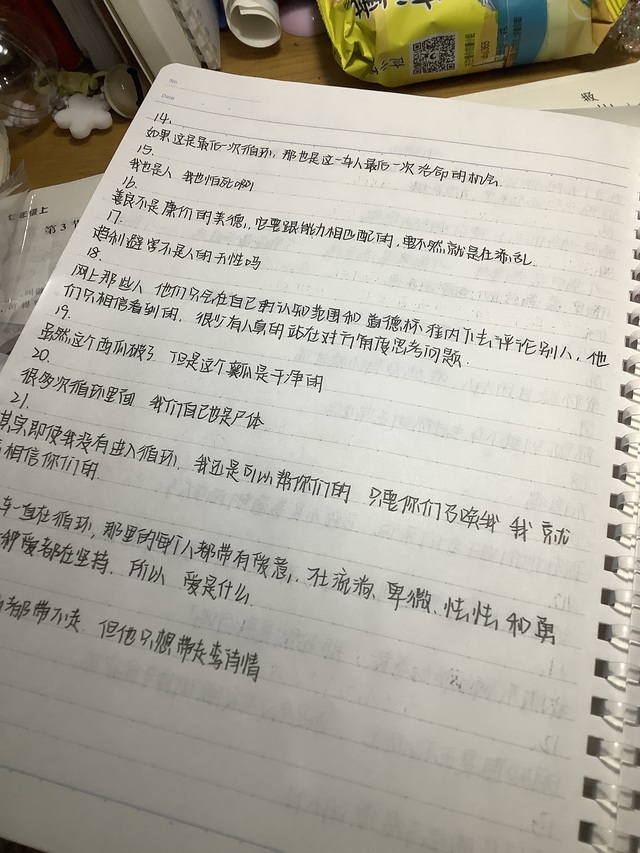 No.
Date
14.
如果这是最后一次循环，那也是这一车人最后一次活命的机会
15.
我也是人 我也怕死啊
16.
善良不是廉价的美德，它要跟能力相匹配的，要不然就是在添乱
17.
趋利避害不是人的天性吗
18.
网上那些人 他们只会在自己的认知范围和道德标准内下去评论别人，他
们只相信看到的，很少有人真的站在对方角度思考问题.
19.
虽然这个西瓜破了 但是这个瓤瓜是干净的
20.
很多次循环里面 我们自己也是尸体
21.
其实即使我没有进入循环，我还是可以帮你们的 只要你们召唤我 我就
相信你们的.
车一直在循环，那里的每个人都带有爱意，在流淌、卑微、怯怯和勇
爱都在坚持. 所以 爱是什么
都带不走，但他只想带走李诗情
第3
报